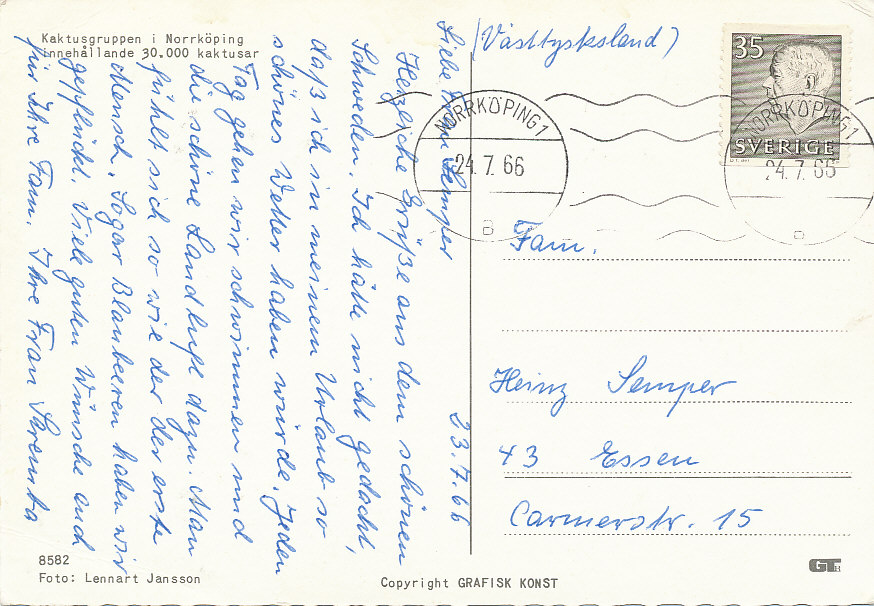 Kaktusgruppen i Norrköping
innehållande 30.000 kaktusar
(Västtyskland)
35
SVERIGE
NORRKÖPING 1
24.7.66
B
NORRKÖPING 1
24.7.66
Liebe Fam Semper 23.7.66
Herzliche Grüße aus dem schönen
Schweden. Ich hätte nicht gedacht,
daß ich in meinem Urlaub so
schönes Wetter haben würde. Jeden
Tag gehen wir schwimmen und
die schöne Landluft dazu. Man
fühlt sich so wie der der erste
Mensch. Sogar Blaubeeren haben wir
gepflückt. Viele guten Wünsche auch
für Ihre Fam. Ihre Frau
Fam.
Heinz Semper
43 Essen
Carmerstr. 15
8582
Foto: Lennart Jansson
Copyright GRAFISK KONST
GK